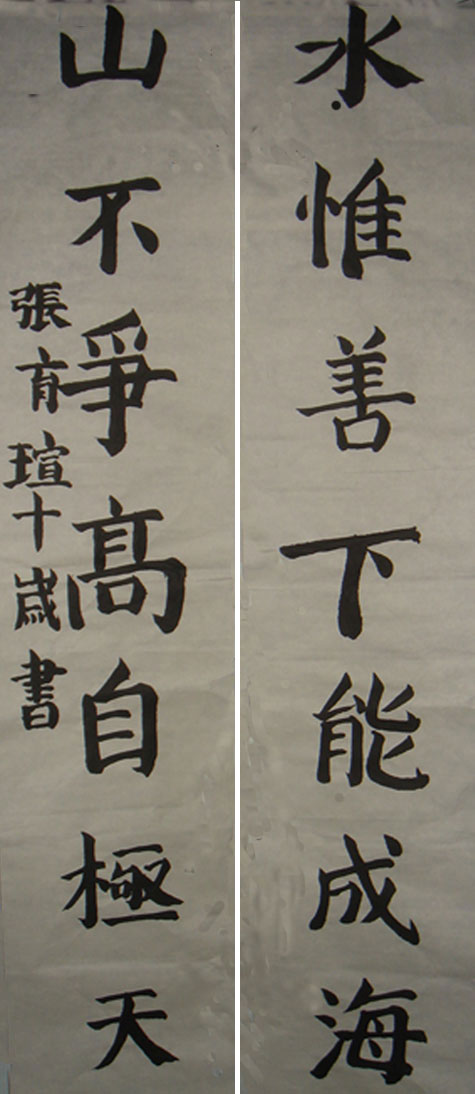 水惟善下能成海
山不爭髙自極天
張育瑄十歲書